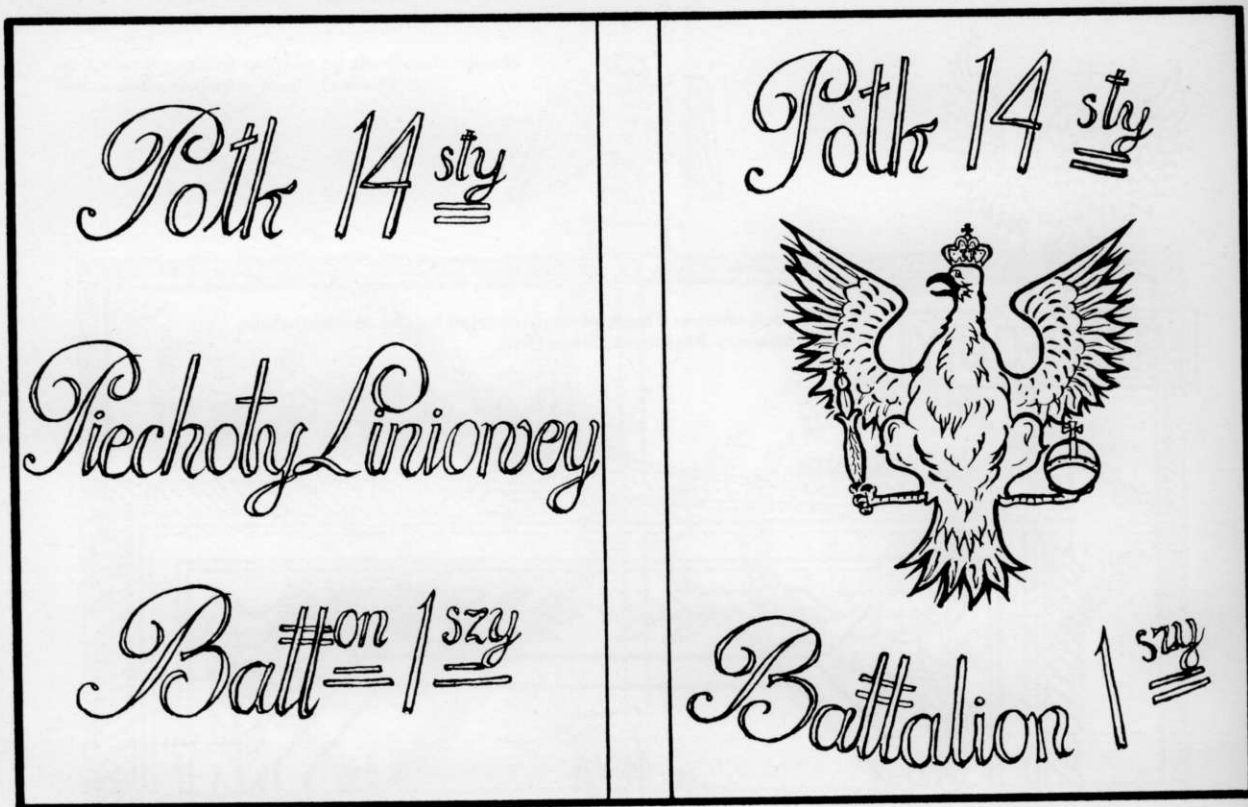 Połk 14 sty
Piechoty Liniowey
Batton 1 szy
Pòłk 14 sty
Battalion 1 szy